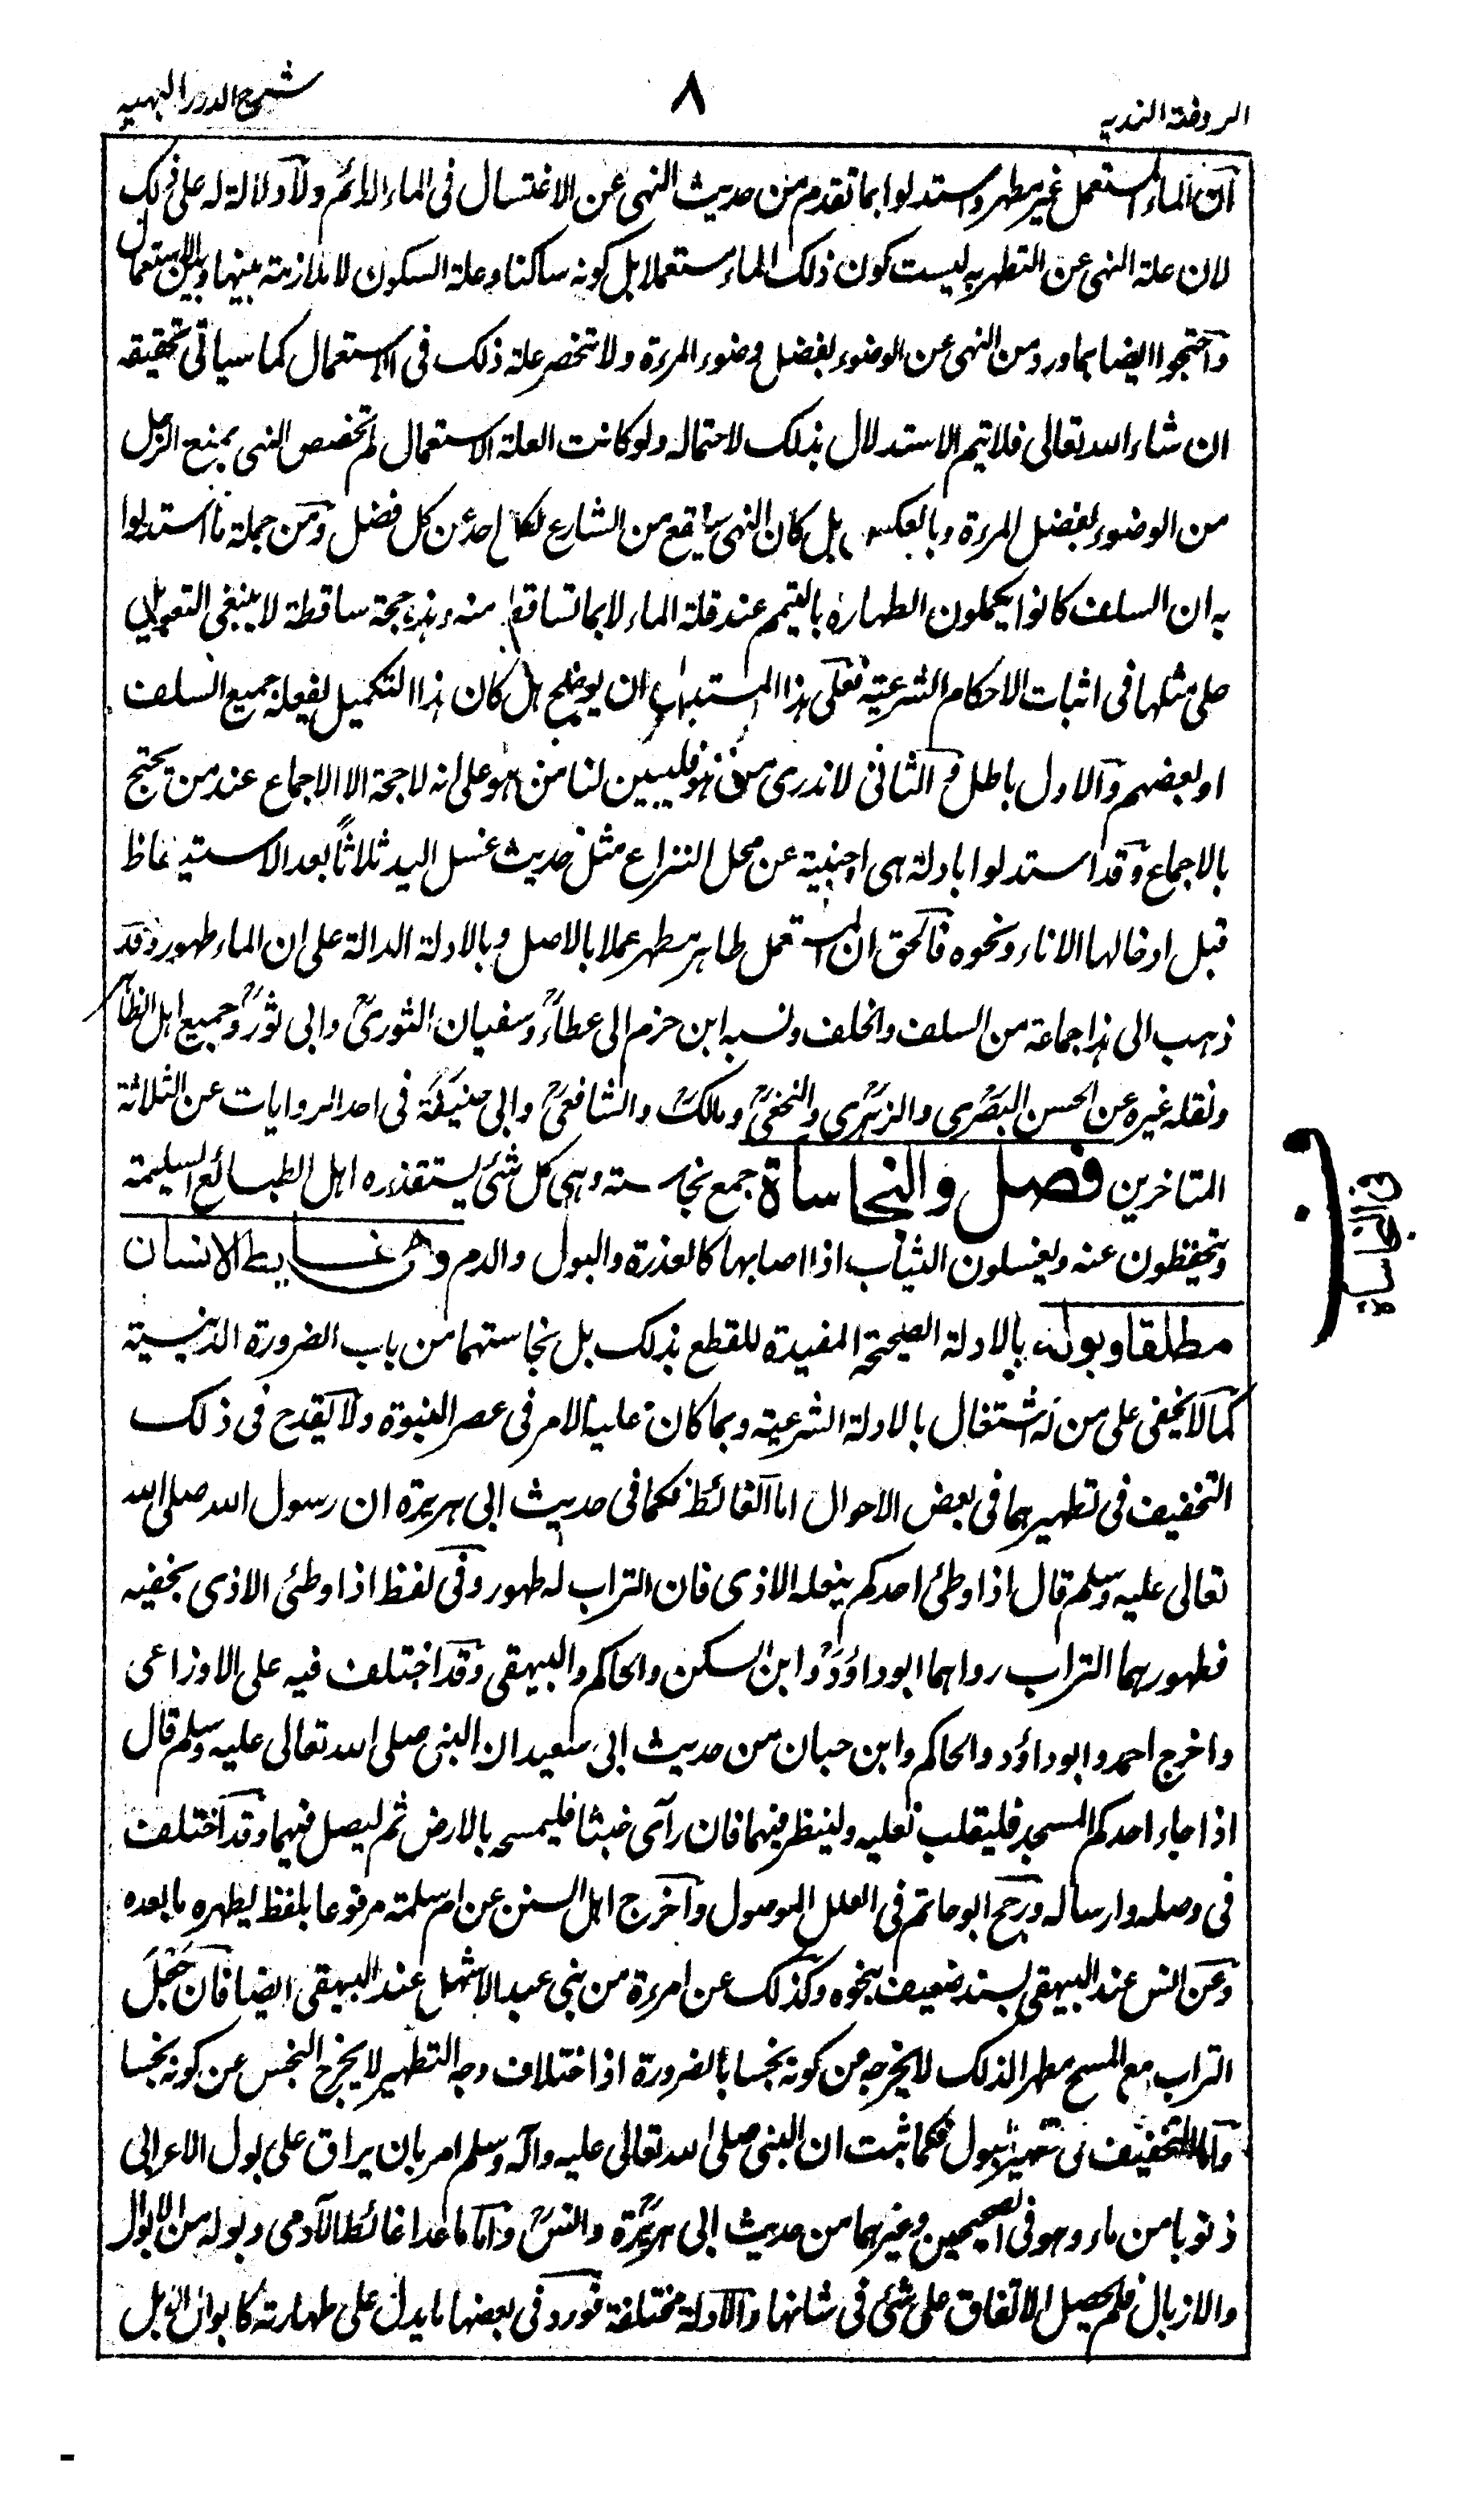 الروضة الندية
٨
شرح الدرر البهية
ان الماء المستعمل غير مطهر واستدلوا بما تقدم من حديث النهي عن الاغتسال في الماء الدائم ولا دلالة له على ذلك
لان علة النهي عن التطهر به ليست كون ذلك الماء مستعملا بل كونه ساكنا وعلة السكون لا ملازمة بينها وبين الاستعمال
واحتجوا ايضا بما ورد من النهي عن الوضوء بفضل وضوء المرءة ولا تنحصر علة ذلك في الاستعمال كما سياتي تحقيقه
ان شاء الله تعالى فلا يتم الاستدلال بذلك لاحتماله ولو كانت العلة الاستعمال لم تختص النهي بمنع الرجل
من الوضوء بفضل المرءة وبالعكس بل كان النهي سيقع من الشارع لكل احد عن كل فضل ومن جملة ما استدلوا
به ان السلف كانوا يكملون الطهارة بالتيمم عند قلة الماء لا بما تساقط منه وهذه حجة ساقطة لا ينبغي التعويل
على مثلها في اثبات الاحكام الشرعية فعلى هذا المستدل ان يوضح هل كان هذا التكميل يفعله جميع السلف
او بعضهم والاول باطل والثاني لا ندري من هو فليبين لنا من هو على انه لا حجة الا الاجماع عند من يحتج
بالاجماع وقد استدلوا بادلة هي اجنبية عن محل النزاع مثل حديث غسل اليد ثلاثا بعد الاستيقاظ
قبل ادخالها الاناء ونحوه فالحق ان المستعمل طاهر مطهر عملا بالاصل وبالادلة الدالة على ان الماء طهور وقد
ذهب الى هذا جماعة من السلف والخلف ونسبه ابن حزم الى عطاء وسفيان الثوري وابي ثور وجميع اهل الظاهر
ونقله غيره عن الحسن البصري والزهري والنخعي ومالك والشافعي وابي حنيفة في احد الروايات عن الثلاثة
المتاخرين فصل والنجاساة جمع نجاسة وهي كل شئ يستقذره اهل الطبائع السليمة
ويتحفظون عنه ويغسلون الثياب اذا اصابها كالعذرة والبول والدم وهي غايط الانسان
مطلقا وبوله بالادلة الصحيحة المفيدة للقطع بذلك بل نجاستهما من باب الضرورة الدينية
كما لا يخفى على من له اشتغال بالادلة الشرعية وبما كان عليه الامر في عصر النبوة ولا يقدح في ذلك
التخفيف في تطهيرهما في بعض الاحوال اما الغائط فكما في حديث ابي هريرة ان رسول الله صلى الله
تعالى عليه وسلم قال اذا وطئ احدكم بنعله الاذى فان التراب له طهور وفي لفظ اذا وطئ الاذى بخفيه
فطهورهما التراب رواهما ابوداؤد وابن السكن والحاكم والبيهقي وقد اختلف فيه على الاوزاعي
واخرج احمد وابوداؤد والحاكم وابن حبان من حديث ابي سعيد ان النبي صلى الله تعالى عليه وسلم قال
اذا جاء احدكم المسجد فليقلب نعليه ولينظر فيهما فان رآى خبثا فليمسحه بالارض ثم ليصل فيهما وقد اختلف
في وصله وارساله ورجح ابو حاتم في العلل الموصول واخرج اهل السنن عن ام سلمة مرفوعا بلفظ يطهره ما بعده
وعن انس عند البيهقي بسند ضعيف بنحوه وكذلك عن امرءة من بني عبد الاشهل عند البيهقي ايضا فان جعل
التراب مع المسح مطهرا لذلك لا يخرجه من كونه نجسا بالضرورة اذ اختلاف وجه التطهير لا يخرج النجس عن كونه نجسا
واما التخفيف في تطهير البول فكما ثبت ان النبي صلى الله تعالى عليه وآله وسلم امر بان يراق على بول الاعرابي
ذنوبا من ماء وهو في الصحيحين وغيرهما من حديث ابي هريرة وانس واما ما عدا غائط الآدمي وبوله من الابوال
والازبال فلم يحصل الاتفاق على شئ في شانها والادلة مختلفة فورد في بعضها ما يدل على طهارته كابوال الابل
ف النجاساة